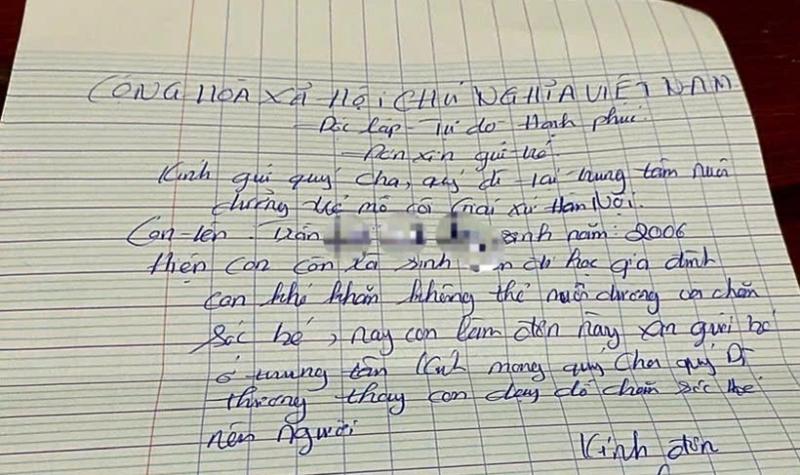 CỘNG HOÀ XÃ HỘI CHỦ NGHĨA VIỆT NAM
- Độc lập - Tự do - Hạnh phúc.
- Đơn xin gửi trẻ.
Kính gửi quý cha, quý dì tại trung tâm nuôi
dưỡng trẻ mồ côi Giáo xứ Hàn Nội.
Con tên: Trần sinh năm: 2006
Hiện con còn là sinh đi học gia đình
con khó khăn không thể nuôi dương và chăm
sóc bé, nay con làm đơn này xin gửi bé
ở trung tâm Kính mong quý Cha quý Dì
thương thay con dạy dỗ chăm sóc bé
nên người
Kính đơn